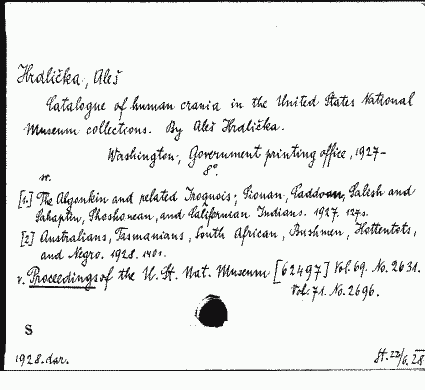 Hrdlička, Aleš
Catalogue of human crania in the United States National
Museum collections. By Aleš Hrdlička.
Washington, Government printing office, 1927-
8°.
v.
[1.] The Algonkin and related Iroquois; Siouan, Caddoan, Salish and
Sahaptin, Shoshonean, and Californian Indians. 1927.
[2] Australians, Tasmanians, South African, Bushmen, Hottentots,
and Negro. 1928.
v. Proceedings of the U. St. Nat. Museum [62497] Vol. 69. No. 2631.
Vol. 71. No. 2696.
S
1928. dar.
St. 22/6. 28